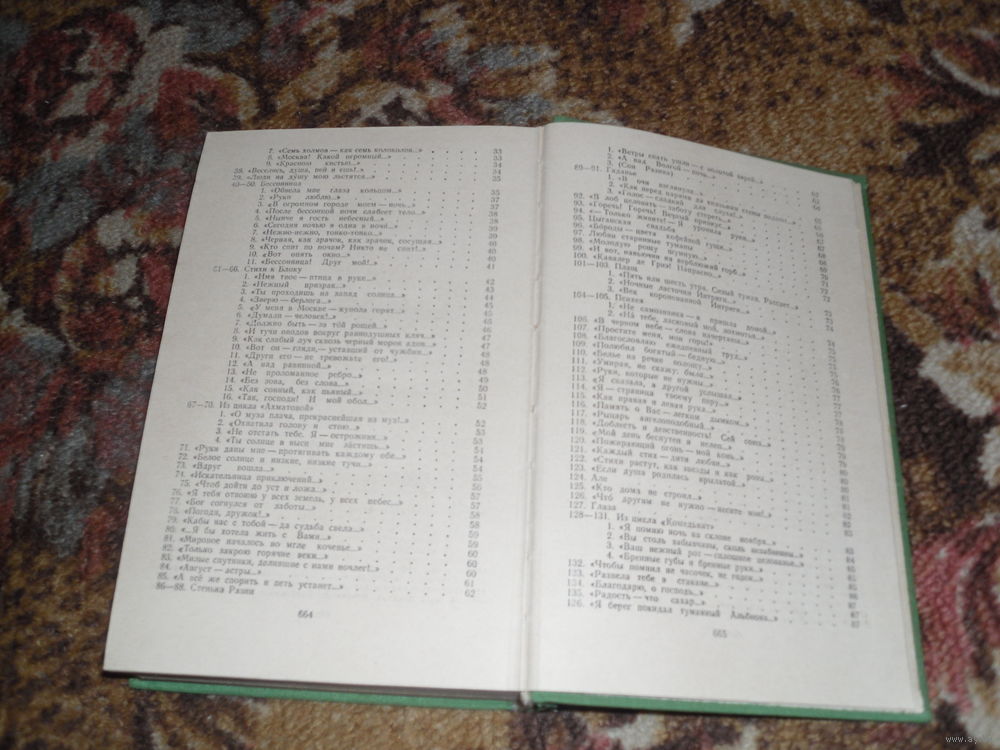 7. «Семь холмов — как семь колоколов...» 33
8. «Москва! Какой огромный...» 33
9. «Красною кистью...» 34
38. «Веселись, душа, пей и ешь!..» 34
39. «Люди на душу мою льстятся...» 35
40—50. Бессонница
1. «Обвела мне глаза кольцом...» 35
2. «Руки люблю...» 37
3. «В огромном городе моем — ночь...» 37
4. «После бессонной ночи слабеет тело...» 38
5. «Нынче я гость небесный...» 38
6. «Сегодня ночью я одна в ночи...» 39
7. «Нежно-нежно, тонко-тонко...» 39
8. «Черная, как зрачок, как зрачок, сосущая...» 39
9. «Кто спит по ночам? Никто не спит!..» 40
10. «Вот опять окно...» 40
11. «Бессонница! Друг мой!..» 41
51—66. Стихи к Блоку
1. «Имя твое — птица в руке...» 42
2. «Нежный призрак...» 42
3. «Ты проходишь на запад солнца...» 43
4. «Зверю — берлога...» 44
5. «У меня в Москве — купола горят...» 45
6. «Думали — человек!..» 45
7. «Должно быть — за той рощей...» 46
8. «И тучи оводов вокруг равнодушных кляч...» 46
9. «Как слабый луч сквозь черный морок адов...» 47
10. «Вот он — гляди, — уставший от чужбин...» 47
11. «Други его — не тревожьте его!..» 48
12. «А над равниной...» 48
13. «Не проломанное ребро...» 48
14. «Без зова, без слова...» 49
15. «Как сонный, как пьяный...» 50
16. «Так, господи! И мой обол...» 51
67—70. Из цикла «Ахматовой» 52
1. «О муза плача, прекраснейшая из муз!..»
2. «Охватила голову и стою...» 52
3. «Не отстать тебе. Я — острожник...» 53
4. «Ты солнце в выси мне застишь...» 53
71. «Руки даны мне — протягивать каждому обе...» 54
72. «Белое солнце и низкие, низкие тучи...» 54
73. «Вдруг вошла...» 54
74. «Искательница приключений...» 55
75. «Чтоб дойти до уст и ложа...» 56
76. «Я тебя отвоюю у всех земель, у всех небес...» 57
77. «Бог согнулся от заботы...» 57
78. «Погоди, дружок!..» 58
79. «Кабы нас с тобой — да судьба свела...» 58
80. «...Я бы хотела жить с Вами...» 59
81. «Мировое началось во мгле кочевье...» 59
82. «Только закрою горячие веки...» 60
83. «Милые спутники, делившие с нами ночлег!..» 60
84. «Август — астры...» 60
85. «А всё же спорить и петь устанет...» 61
86—88. Стенька Разин 62
664
1. «Ветры спать ушли — с золотой зарей...» 62
2. «А над Волгой — ночь...»
3. (Сон Разина)
89—91. Гаданье
1. «В очи взглянула...»
2. «Как перед царями да князьями стены падают...»
3. «Голос — сладкий для слуха...»
92. «В лоб целовать — заботу стереть...»
93. «Горечь! Горечь! Вечный привкус...»
94. «— Только живите! — Я уронила руки...»
95. Цыганская свадьба
96. «Бороды — цвета кофейной гущи...»
97. Любви старинные туманы
98. «Молодую рощу шумную...»
99. «И вот, навьючив на верблюжий горб...»
100. «Кавалер де Гриэ! Напрасно...»
101—103. Плащ
1. «Пять или шесть утра. Сизый туман. Рассвет...»
2. «Ночные ласточки Интриги...»
3. «Век коронованной Интриги...»
104—105. Психея
1. «Не самозванка — я пришла домой...»
2. «На тебе, ласковый мой, лохмотья...»
106. «В черном небе — слова начертаны...»
107. «Простите меня, мои горы!..»
108. «Благословляю ежедневный труд...»
109. «Полюбил богатый — бедную...»
110. «Белье на речке полощу...»
111. «Умирая, не скажу: была...»
112. «Руки, которые не нужны...»
113. «Я сказала, а другой услышал...»
114. «Я — страница твоему перу...»
115. «Как правая и левая рука...»
116. «Память о Вас — легким дымком...»
117. «Рыцарь ангелоподобный...»
118. «Доблесть и девственность! Сей союз...»
119. «Мой день беспутен и нелеп...»
120. «Пожирающий огонь — мой конь...»
121. «Каждый стих — дитя любви...»
122. «Стихи растут, как звезды и как розы...»
123. «Если душа родилась крылатой...»
124. Але
125. «Кто дома не строил...»
126. «Что другим не нужно — несите мне!..»
127. Глаза
128—131. Из цикла «Комедьянт»
1. «Я помню ночь на склоне ноября...»
2. «Вы столь забывчивы, сколь незабвенны...»
3. «Ваш нежный рот — сплошное целованье...»
4. «Бренные губы и бренные руки...»
132. «Чтобы помнил не часочек, не годок...»
133. «Развела тебе в стакане...»
134. «Благодарю, о господь...»
135. «Радость — что сахар...»
136. «Я берег покидал туманный Альбиона...» 87
665